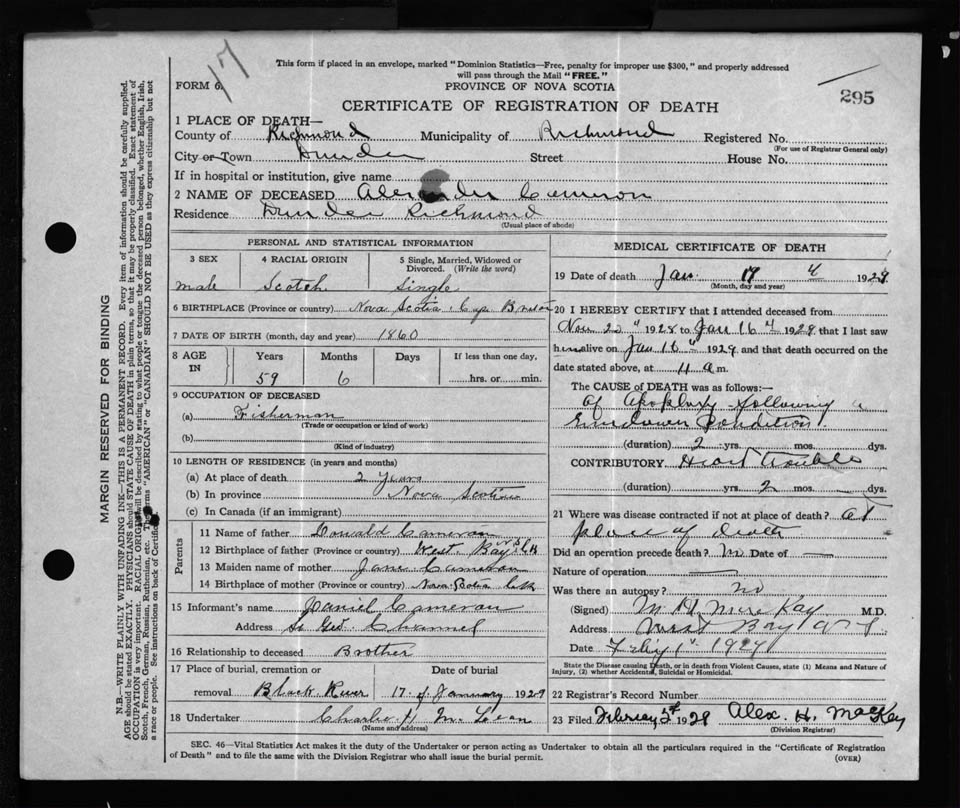 17
This form if placed in an envelope, marked "Dominion Statistics—Free, penalty for improper use $300," and properly addressed
will pass through the Mail "FREE."
FORM 6.
PROVINCE OF NOVA SCOTIA
295
CERTIFICATE OF REGISTRATION OF DEATH
1 PLACE OF DEATH—
County of Richmond Municipality of Richmond Registered No.
(For use of Registrar General only)
City or Town Dundee Street House No.
If in hospital or institution, give name
2 NAME OF DECEASED Alexander Cameron
Residence Dundee Richmond
(Usual place of abode)
PERSONAL AND STATISTICAL INFORMATION
3 SEX 4 RACIAL ORIGIN 5 Single, Married, Widowed or
Divorced. (Write the word)
male Scotch Single
6 BIRTHPLACE (Province or country) Nova Scotia Cap Breton
7 DATE OF BIRTH (month, day and year) 1860
8 AGE IN Years Months Days If less than one day,
59 6 hrs. or min.
9 OCCUPATION OF DECEASED
(a) Fisherman
(Trade or occupation or kind of work)
(b)
(Kind of industry)
10 LENGTH OF RESIDENCE (in years and months)
(a) At place of death 2 years
(b) In province Nova Scotia
(c) In Canada (if an immigrant)
Parents
11 Name of father Donald Cameron
12 Birthplace of father (Province or country) West Bay N.S. C.B.
13 Maiden name of mother Jane Cameron
14 Birthplace of mother (Province or country) Nova Scotia C.B.
15 Informant's name Daniel Cameron
Address St Geo. Channel
16 Relationship to deceased Brother
17 Place of burial, cremation or Date of burial
removal Black River 17 of January 1929
18 Undertaker Charlie H McLean
(Name and address)
MEDICAL CERTIFICATE OF DEATH
19 Date of death Jan. 17 1929
(Month, day and year)
20 I HEREBY CERTIFY that I attended deceased from
Nov 20 1928 to Jan 16 1928 that I last saw
him alive on Jan 16 1929 and that death occurred on the
date stated above, at 4 a m.
The CAUSE OF DEATH was as follows:—
of Apoplexy following a
condition
(duration) 2 yrs. mos. dys.
CONTRIBUTORY Heart trouble
(duration) yrs. 2 mos. dys.
21 Where was disease contracted if not at place of death? at
place of death
Did an operation precede death? No Date of —
Nature of operation —
Was there an autopsy? no
(Signed) M.D.
Address West Bay
Date Feby 1st 1929
State the Disease causing Death, or in death from Violent Causes, state (1) Means and Nature of
Injury, (2) whether Accidental, Suicidal or Homicidal.
22 Registrar's Record Number
23 Filed February 5th 1929 Alex. H. MacKay
(Division Registrar)
SEC. 46—Vital Statistics Act makes it the duty of the Undertaker or person acting as Undertaker to obtain all the particulars required in the "Certificate of Registration
of Death" and to file the same with the Division Registrar who shall issue the burial permit.
(OVER)
MARGIN RESERVED FOR BINDING
N.B.—WRITE PLAINLY WITH UNFADING INK—THIS IS A PERMANENT RECORD. Every item of information should be carefully supplied.
AGE should be stated EXACTLY. PHYSICIANS should STATE CAUSE OF DEATH in plain terms, so that it may be properly classified. Exact statement of
OCCUPATION is very important. RACIAL ORIGIN will be described by stating to what people or tongue the deceased person belonged, whether English, Irish,
Scotch, French, German, Russian, Ruthenian, etc. The terms "AMERICAN" or "CANADIAN" SHOULD NOT BE USED as they express citizenship but not
a race or people. See instructions on back of Certificate.